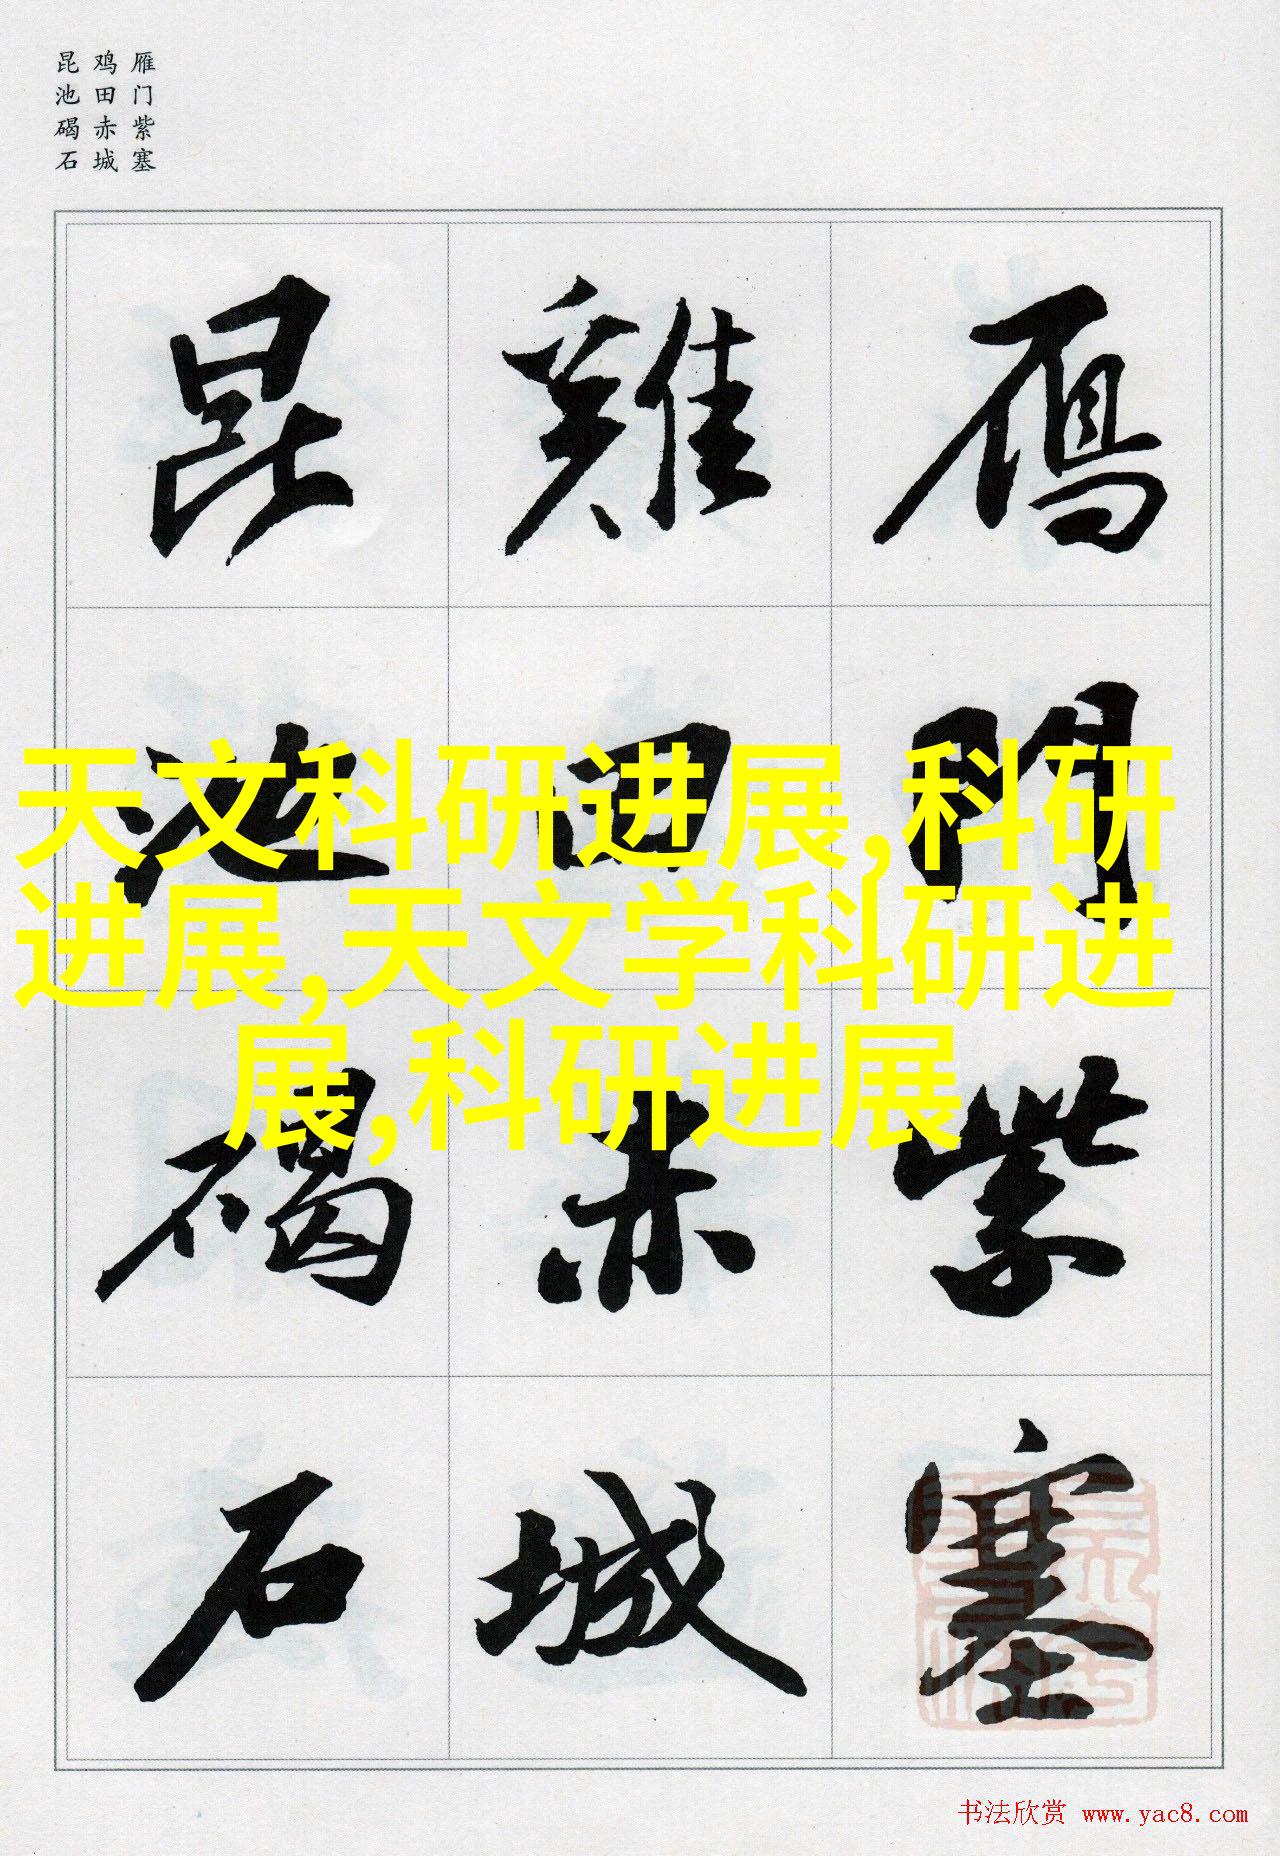 雁门紫塞
鸡田赤城
昆池碣石
雁門紫塞
雞田赤城
昆池碣石
天文科研进展,科研
进展,天文学科研进
展,科研进展
书法欣赏 www.yac8.com